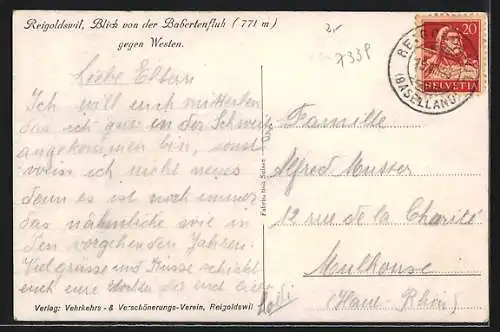 Reigoldswil, Blick von der Babertenfluh (771 m)
gegen Westen.
Liebe Eltern
Ich will euch mitteilen
das ich gut in der Schweiz
angekommen bin, sonst
weiss ich nicht neues
denn es ist noch immer
das nähmliche wie in
den vorgehenden Jahren.
Viel grüsse und Küsse schickt
euch eure und
Verlag: Vehrkehrs- & Verschönerungs-Verein, Reigoldswil
7338
20
HELVETIA
(BASELLAND)
Familie
Alfred Musser
12 rue de la Charité
Mulhouse
(Haut-Rhin)